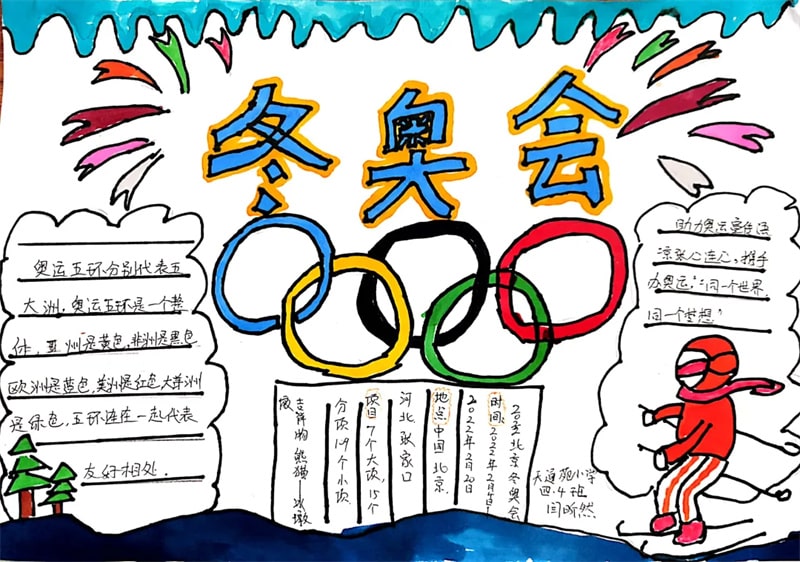 冬奥会
奥运五环分别代表五
大洲,奥运五环是一个整
体,亚洲是黄色,非洲是黑色
欧洲是蓝色,美洲是红色,大洋洲
是绿色,五环连在一起代表
友好相处.
助力奥运
京张心连心,携手
办奥运,"同一个世界,
同一个梦想"
北京冬奥会
时间:2022年2月4日-
2022年2月20日
地点:中国 北京
河北 张家口
项目:7个大项,15个
分项 109个小项
吉祥物 熊猫—冰墩
墩
天通苑小学
四.4班
闫昕然.